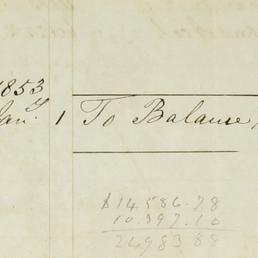 1853
Jany. 1 To Balance,
$14,586.78
10.397.10
24,983 88